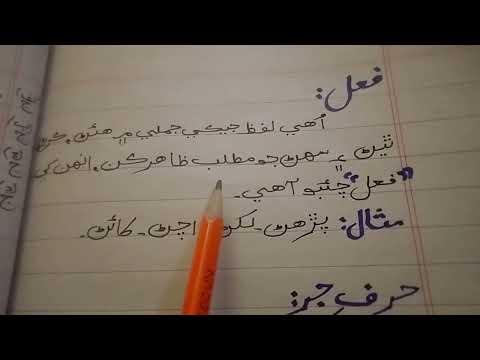 فعل:
اُهي لفظ جيڪي جملي ۾ هئڻ، ڪرڻ،
ٿيڻ ۽ سهڻ جو مطلب ظاهر ڪن، انهن کي
”فعل“ چئبو آهي۔
مثال: پڙهڻ۔ لکڻ۔ اچڻ۔ کائڻ۔
حرفِ جر: